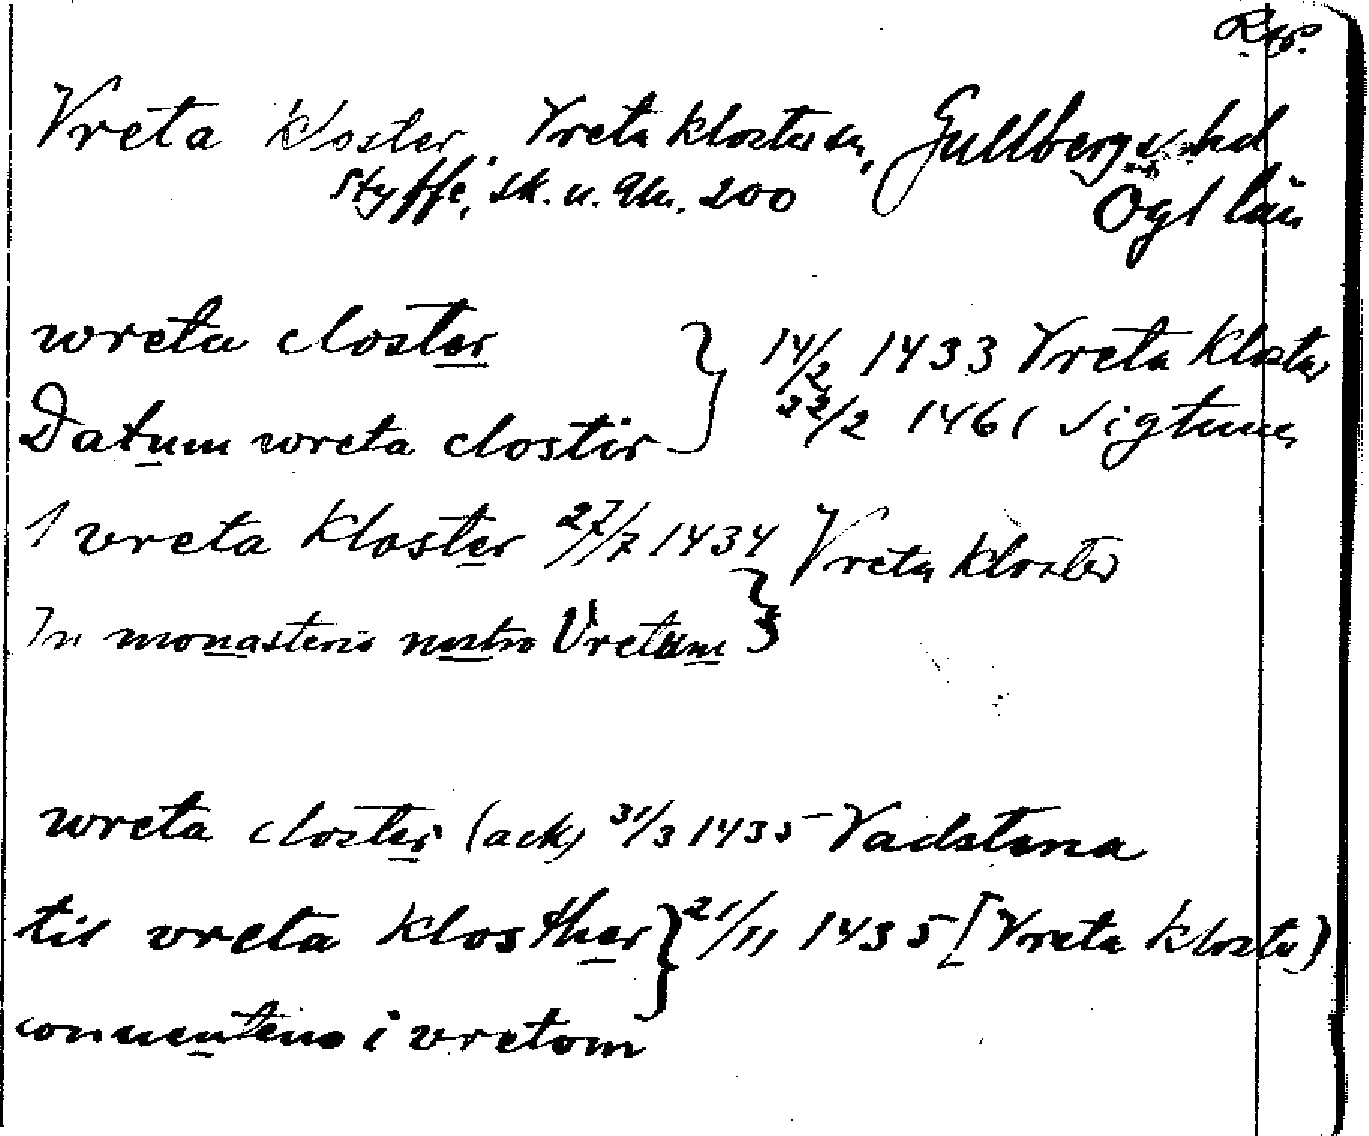 Rep.
Vreta kloster. Vreta klosters sn, Gullbergs hd
Styffe, sk. u. Un. 200 Ögl län
wreta closter } 14/2 1433 Vreta kloster
Datum wreta clostir } 22/2 1461 Sigtuna
I vreta kloster 27/7 1434 Vreta kloster
In monasterio nostro Vretum }
wreta closter (ack) 31/3 1435 Vadstena
til vreta closther } 21/11 1435 [Vreta kloster)
conuenteno i vretom